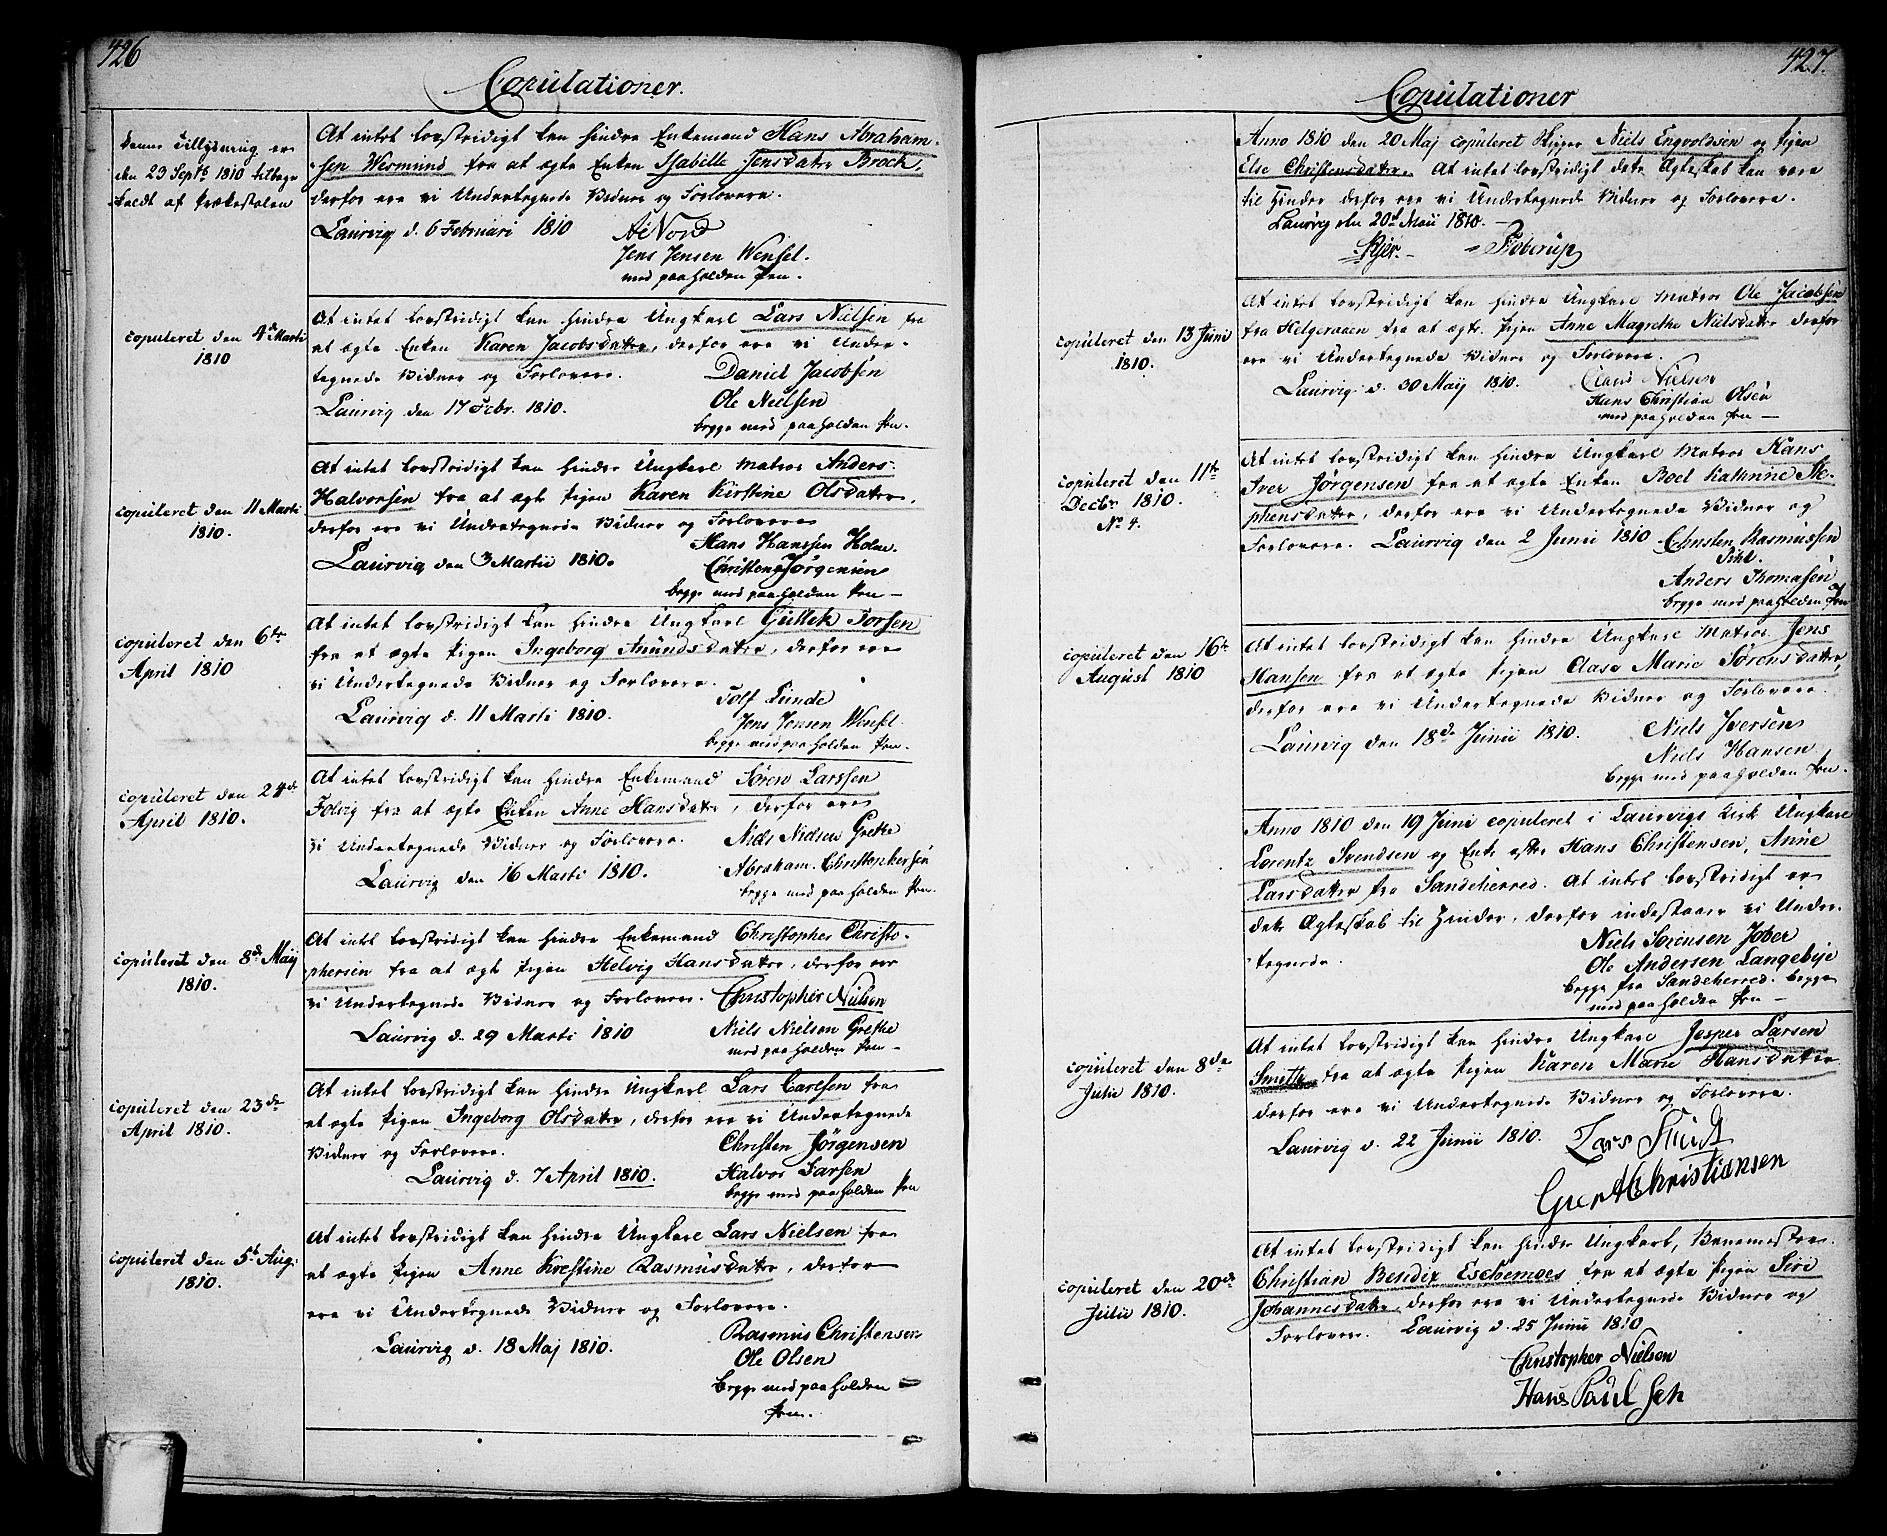 426
Copulationer.
Denne Tillysning er
den 23 Septb 1810 tilbage
kaldt af Prækestolen
At intet lovstridigt kan hindre Enkemand Hans Abraham-
sen Wesmund fra at ægte Enken Isabelle Jensdater Brock,
derfor ere vi Undertegnede Vidner og Forlovere.
Laurvig d. 6 Februari 1810
Jens Jensen Wensel.
med paaholden Pen.
copuleret den 4de Marti
1810
At intet lovstridigt kan hindre Ungkarl Lars Nielsen fra
at ægte Enken Karen Jacobsdater, derfor ere vi Under-
tegnede Vidner og Forlovere.
Daniel Jacobsen
Laurvig den 17 Febr. 1810.
Ole Nielsen
begge med paaholden Pen.
copuleret den 11 Marti
1810.
At intet lovstridigt kan hindre Ungkarl Matros Anders
Halvorsen fra at ægte Pigen Karen Kirstine Olsdater,
derfor ere vi Undertegnede Vidner og Forlovere
Hans Hanssen Holm.
Laurvig den 3 Martii 1810.
Christen Jørgensen
begge med paaholden Pen –
copuleret den 6te
April 1810
At intet lovstridigt kan hindre Ungkarl Gullek Torsen
fra at ægte Pigen Ingeborg Amundsdater, derfor ere
vi Undertegnede Vidner og Forlovere.
Tolf Lunde
Laurvig d. 11 Marti 1810.
Jens Jensen Wensel.
begge med paaholden Pen.
copuleret den 24de
April 1810.
At intet lovstridigt kan hindre Enkemand Søren Larssen
Folvig fra at ægte Enken Anne Hansdater, derfor ere
vi Undertegnede Vidner og Forlovere.
Niels Nielsen Grethe
Laurvig den 16 Marti 1810.
Abraham Christophersen
begge med paaholden Pen.
copuleret den 8de Maij
1810.
At intet lovstridigt kan hindre Enkemand Christopher Christo-
phersen fra at ægte Pigen Helvig Hansdater, derfor ere
vi Undertegnede Vidner og Forlovere.
Christopher Nielsen
Laurvig d. 29 Marti 1810
Niels Nielsen Grethe
med paaholden Pen –
copuleret den 23de
April 1810.
At intet lovstridigt kan hindre Ungkarl Lars Carlsen fra
at ægte Pigen Ingeborg Olsdater, derfor ere vi Undertegnede
Vidner og Forlovere.
Christen Jørgensen
Laurvig d. 7 April 1810.
Halvor Larsen
begge med paaholden Pen
copuleret den 5t Aug:
1810.
At intet lovstridigt kan hindre Ungkarl Lars Nielsen fra
at ægte Pigen Anne Krestine Rasmusdater, derfor
ere vi Undertegnede Vidner og Forlovere.
Rasmus Christensen
Laurvig d. 18 Maj 1810.
Ole Olsen
begge med paaholden
Pen.
427.
Copulationer
Anno 1810 den 20 Maj copuleret Skipper Niels Engvoldsen og Pigen
Else Christensdater. At intet lovstridigt dette Ægteskab kan være
til Hinder derfor ere vi Undertegnede Vidner og Forlovere.
Laurvig den 20d Maii 1810.
Kjer. – Touerup
copuleret den 13 Junii
1810.
At intet lovstridigt kan hindre Ungkarl Matros Ole Jacobsen
fra Helgeraaen fra at ægte Pigen Anne Magrethe Nielsdater derfor
ere vi Undertegnede Vidner og Forlovere.
Laurvig d. 30 Maij 1810.
Claus Nielsen
Hans Christian Olsen
med paaholden Pen –
copuleret den 11te
Decbr 1810.
No 4.
At intet lovstridigt kan hindre Ungkarl Matros Hans
Iver Jørgensen fra at ægte Enken Boel Kathrine Ste-
phensdater, derfor ere vi Undertegnede Vidner og
Forlovere. Laurvig den 2 Junii 1810
Christen Rasmussen
Anders Thomasen
begge med paaholden Pen
copuleret den 16te
August 1810
At intet lovstridigt kan hindre Ungkarl Matros Jens
Hansen fra at ægte Pigen Clase Marie Sørensdater,
derfor ere vi Undertegnede Vidner og Forlovere.
Laurvig den 18de Junii 1810.
Niels Iversen
Niels Hansen
begge med paaholden Pen.
Anno 1810 den 19 Juni copuleret i Laurvigs Kirk Ungkarl
Lorentz Svendsen og Enke efter Hans Christensen, Anne
Larsdater fra Sandeherred. At intet lovstridigt er
dette Ægteskab til Hinder, derfor indestaaer vi Under-
tegnede.
Niels Sørensen Jober
Ole Andersen Langebye
begge fra Sandeherred. begge
med paaholden Pen –
copuleret den 8de
Julii 1810.
At intet lovstridigt kan hindre Ungkarl Jesper Larsen
Smith fra at ægte Pigen Karen Marie Hansdater
derfor ere vi Undertegnede Vidner og Forlovere.
Laurvig d. 22 Junii 1810.
Lars Smidt
Gert Christiansen
copuleret den 20de
Julii 1810.
At intet lovstridigt kan hindre Ungkarl,
Christian Bendix Eschemoes fra at ægte Pigen Siri
Johannesdater, derfor ere vi Undertegnede Vidner og
Forlovere. Laurvig d. 25 Junii 1810
Christopher Nielsen
Hans Paulsen